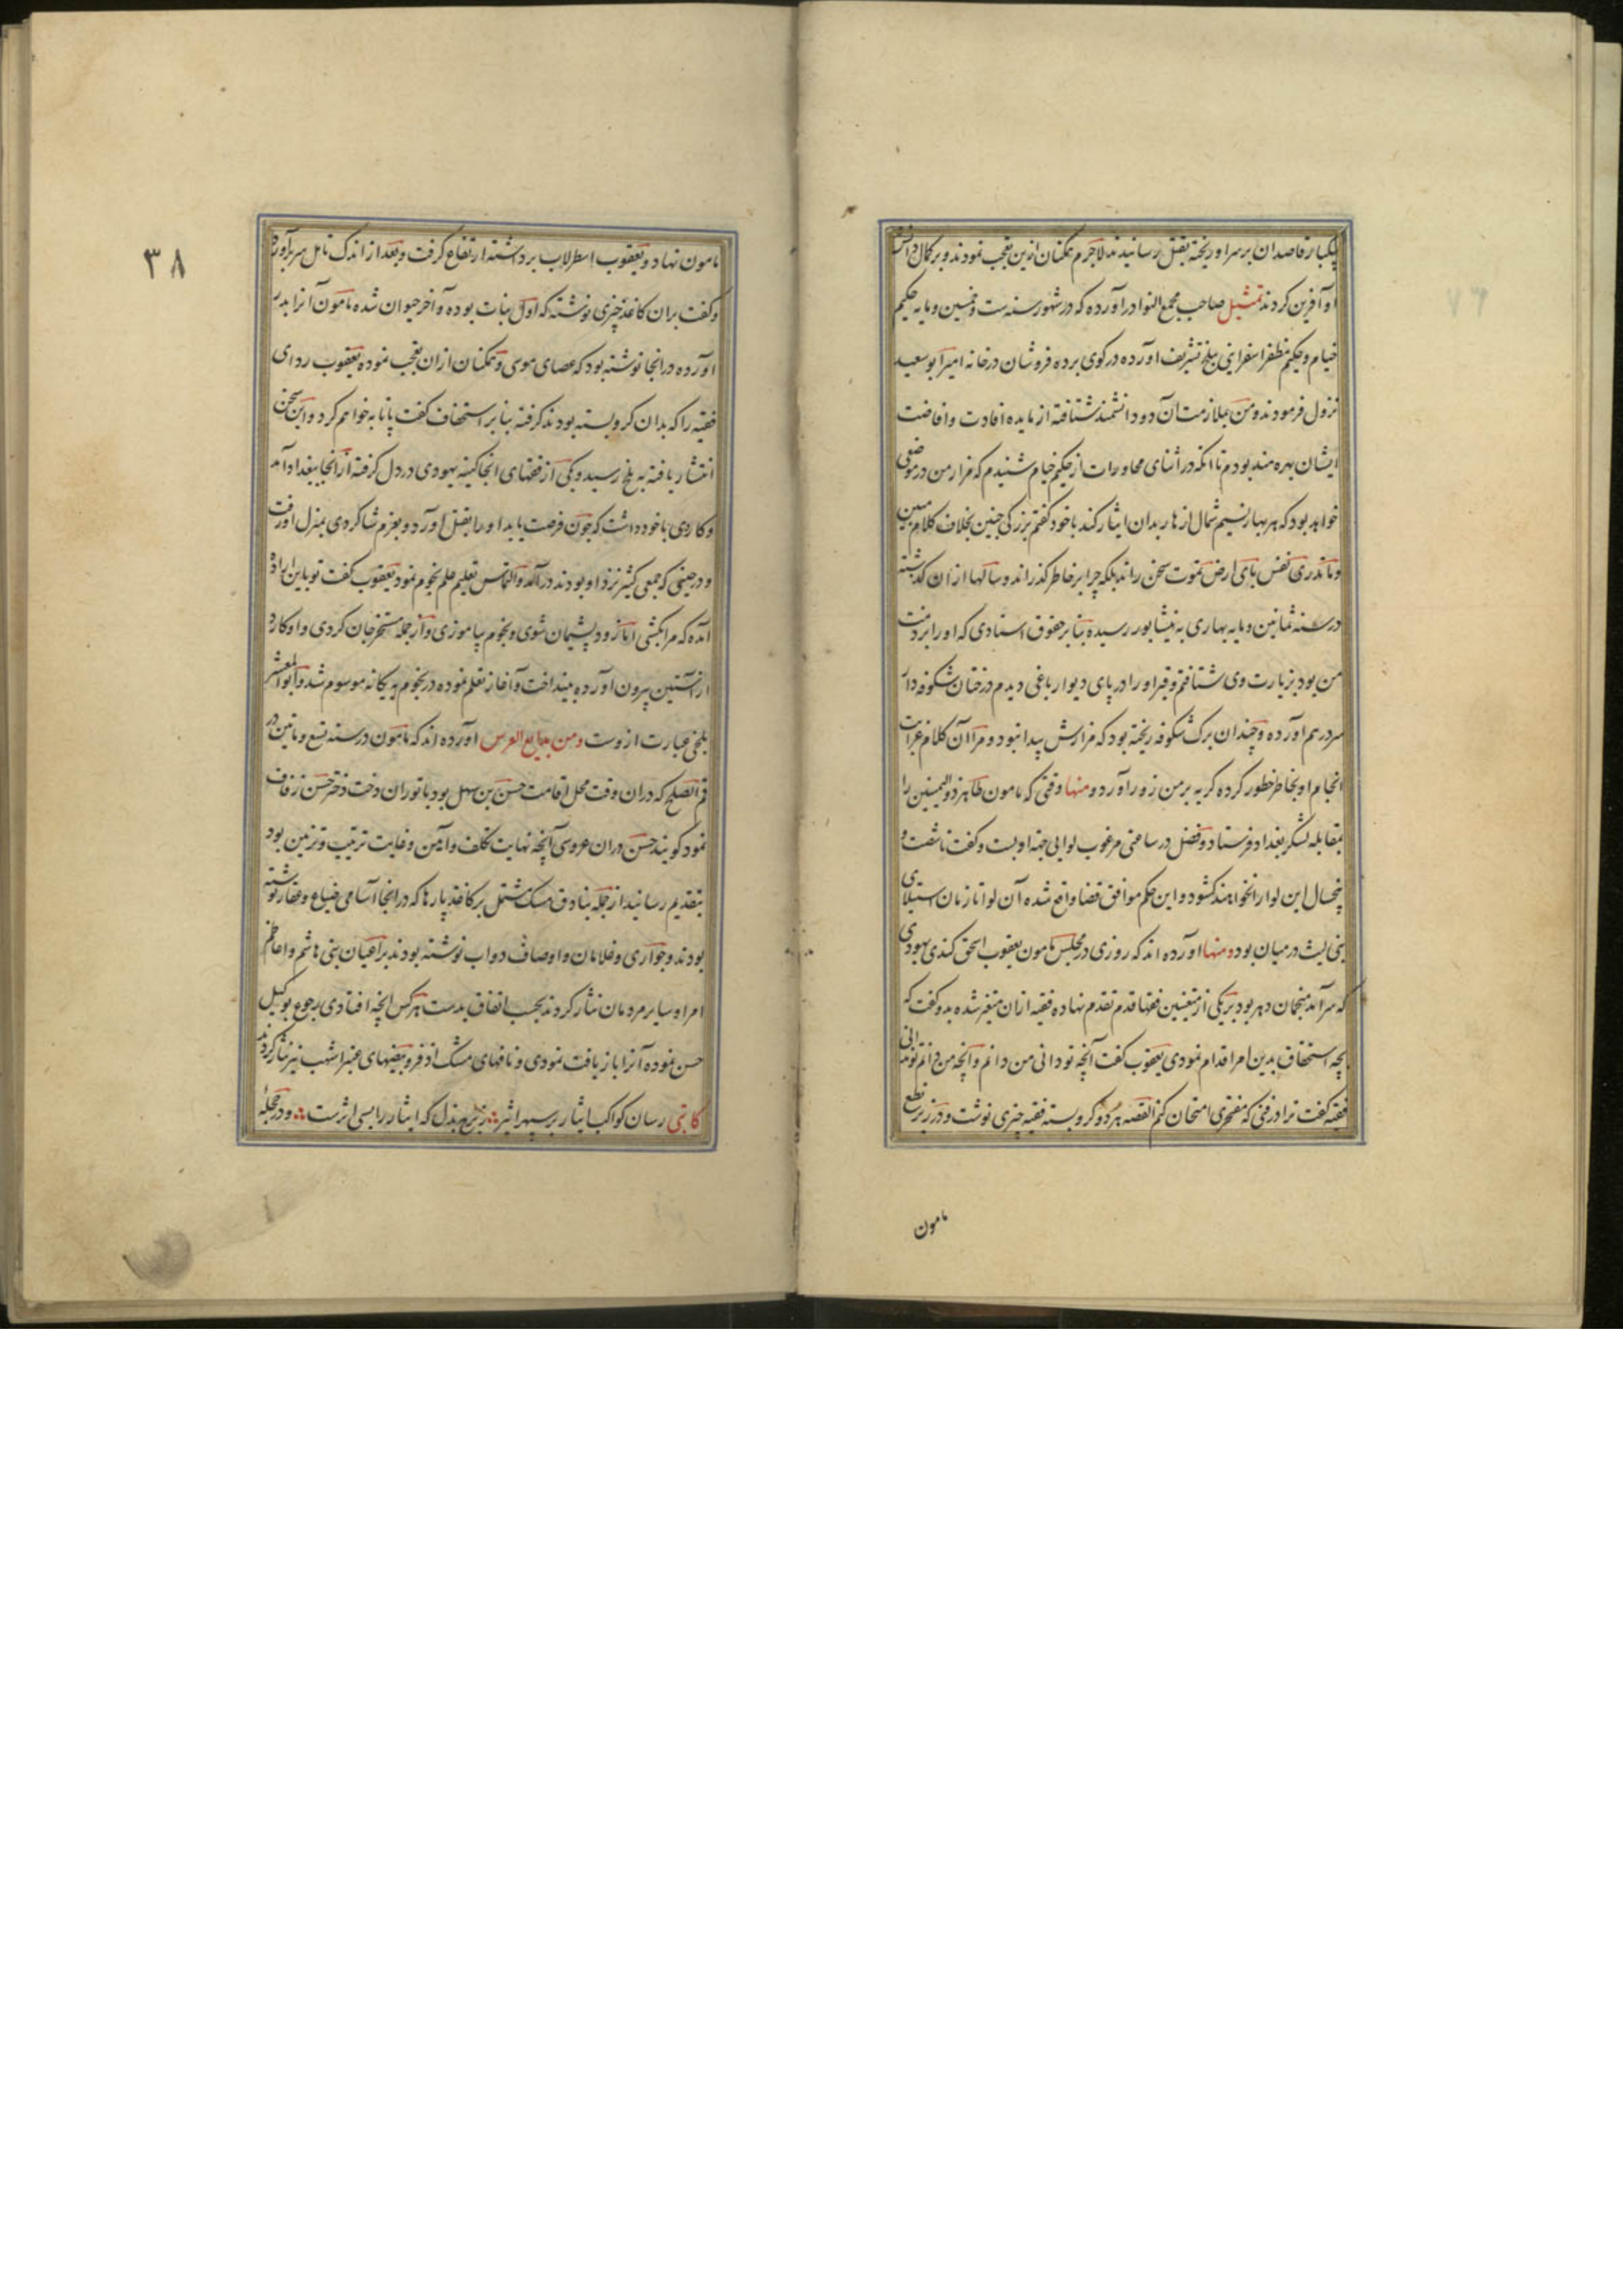 یکبار قاصدان بر سر او ریخته بقتل رسانیدند لاجرم همکنان ازین تعجب نمودند و بر کمال دانش
او آفرین کردند تمثیل صاحب مجمع النوادر آورده که در شهور سنه ست و خمسین و مایه حکیم
خیام و حکیم مظفر اسفراینی ببلخ تشریف آورده در کوی برده فروشان در خانه امیر ابو سعید
نزول فرمودند و من بملازمت آن دو دانشمند شتافته از مایده افادت و افاضت
ایشان بهره مند بودم تا آنکه در اثنای محاورات از حکیم خیام شنیدم که مزار من در موضعی
خواهد بود که هر بهار نسیم شمال ازهار بدان ایثار کند با خود کفتم بزرکی چنین بخلاف کلام مبین
و ما تدری نفس بای ارض تموت سخن راند بلکه چرا بر خاطر کذراند و سالها از آن کذشته
در سنه ثمانین و مایه بهاری به نیشابور رسیده بنابر حقوق استادی که او را بر ذمت
من بود بزیارت وی شتافتم و قبر او را در پای دیوار باغی دیدم درختان شکوفه دار
سر در هم آورده و چندان برک شکوفه ریخته بود که مزارش پیدا نبود و مرا آن کلام غرابت
انجام او بخاطر خطور کرده کریه بر من زور آورد و منها وقتی که مامون طاهر ذوالیمینین را
بمقابله لشکر بغداد فرستاد و فضل در ساعتی مرغوب لوایی جهة او بست و کفت تا شصت و
پنجسال این لوا را نخواهند کشود و این حکم موافق قضا واقع شده آن لوا تا زمان استیلای
بنی لیث در میان بود و منها آورده اند که روزی در مجلس مامون یعقوب اسحق کندی یهودی
که سر آمد منجمان دهر بود بر یکی از متعینین فقها قدم تقدم نهاده فقیه از آن متغیر شده بدو کفت که
بچه استخفاق بدین امر اقدام نمودی یعقوب کفت آنچه تو دانی من دانم و آنچه من دانم تو ندانی
فقیه کفت ترا در فنی که مفتخری امتحان کنم القصه هر دو کرو بسته فقیه چیزی نوشت و در زیر نطع
مامون
۳۸
مامون نهاد و یعقوب اسطرلاب برداشته ارتفاع کرفت و بعد از اندک تامل سر بر آورده
و کفت بر آن کاغذ چیزی نوشته که اول نبات بوده و آخر حیوان شده مامون آنرا بدر
آورده در آنجا نوشته بود که عصای موسی و همکنان از آن تعجب نموده یعقوب ردای
فقیه را که بدان کرو بسته بودند کرفته بنابر استخفاف کفت پاتابه خواهم کرد و این سخن
انتشار یافته به بلخ رسید و یکی از فقهای آنجا کینه یهودی در دل کرفته از آنجا ببغداد آمد
و کاردی با خود داشت که چون فرصت یابد او را بقتل آورد و بعزم شاکردی بمنزل او رفت
و در حینی که جمعی کثیر نزد او بودند در آمد و التماس تعلیم علم نجوم نمود یعقوب کفت تو باین اراده
آمده که مرا بکشی اما زود پشیمان شوی و نجوم بیاموزی و از جمله مستخرجان کردی و او کارد
از آستین بیرون آورده بینداخت و آغاز تعلم نموده در نجوم به یکانه موسوم شد و ابو المعشر
بلخی عبارت ازوست ومن بدایع العرس آورده اند که مامون در سنه تسع و ماتین در
فم الصلح که در آن وقت محل اقامت حسن بن سهل بود با توران دخت دختر حسن زفاف
نمود کویند حسن در آن عروسی آنچه نهایت تکلف و آیین و غایت ترتیب و تزیین بود
بتقدیم رسانید از جمله بنادق مسک مشتمل بر کاغذ پارها که در آنجا اسامی ضیاع و عقار نوشته
بودند و جواری و غلامان و اوصاف دواب نوشته بودند بر اعیان بنی هاشم و اعاظم
امرا و سایر مردمان نثار کردند بحسب اتفاق بدست هر کس آنچه افتادی رجوع بوکیل
حسن نموده آنرا باز یافت نمودی و نافهای مشک اذفر و بیضهای عنبر اشهب نیز نثار کردند
کاتبی رسان کواکب ایثار بر سپهر اثیر ∴ بذل که ایثار را بسی اثرست ∴ و در حجله